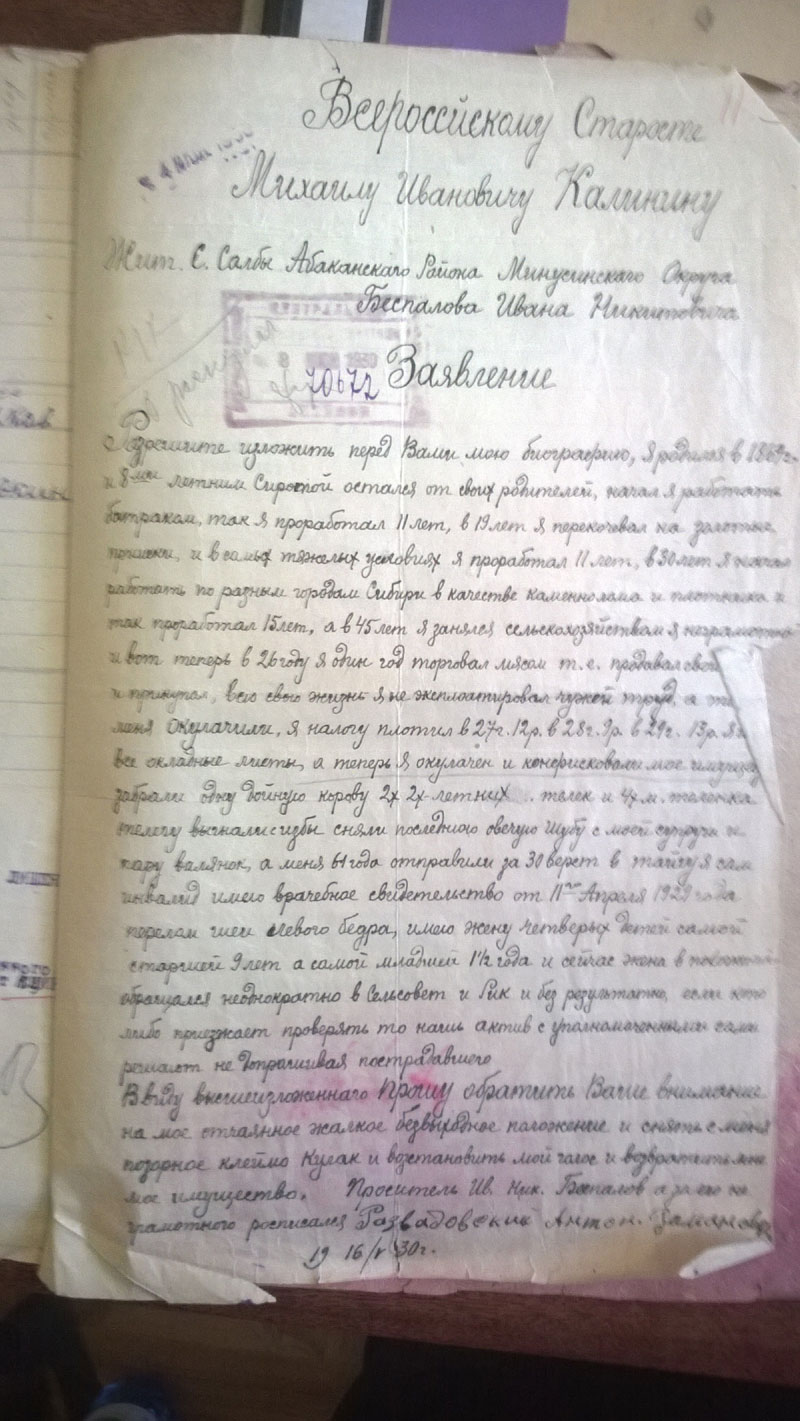 Всероссйскому Старосте
Михаилу Ивановичу Калинину
Жит. С. Салбы Абаканскаго Района Минусинскаго Округа
Беспалова Ивана Никитовича
70672
Заявление
Розрешите изложить перед Вами мою биографию, я родился в 1869г.
и 8ми летним Сиротой остался от своих родителей, начал я работать
батраком, так я проработал 11 лет, в 19 лет я перекочевал на золотые
прииски, и в самых тяжелых условиях я проработал 11 лет, в 30 лет я начал
работать по разным городам Сибири в качестве каменнолама и плотника и
так проработал 15 лет, а в 45 лет я занялся сельскохозяйствам я неграмотной
и вот теперь в 26 году я один год торговал мясом т.е. продавал свой
и прикупал, всю свою жизнь я не эксплоатировал чужой труд, а
меня окулачили, я налогу плотил в 27г. 12р. в 28г. 9р. в 29г. 13р.
все окладные листы, а теперь я окулачен и конфисковали мое имущ
забрали одну дойную корову 2х 2х-летних телек и 4х м. теленка
телегу выгнали с избы сняли последнюю овечую шубу с моей супруги и
пару валянок, а меня 61 года отправили за 30 верст в тайгу я сам
инвалид имею врачебное свидетельство от 11го Апреля 1929 года
перелам шеи левого бедра, имею жену четверых детей самой
старшей 9 лет а самой младшей 1½ года и сейчас жена в
обращался неоднократно в Сельсовет и Рик и без результатно, если кто
либо приезжает проверять то нашь актив с уполномоченными сами
решают не допрашивая пострадавшего
Ввиду высшеизложеннаго прошу обратить Ваше внимание
на мое отчаянное жалкое безвыходное положение и снять с меня
позорное клеймо Кулак и возстановить мой голос и возвратить мне
мое имущество. Проситель Ив. Ник. Беспалов а за его не
грамотного росписался Развадовский Антон.
19 16/V 30г.